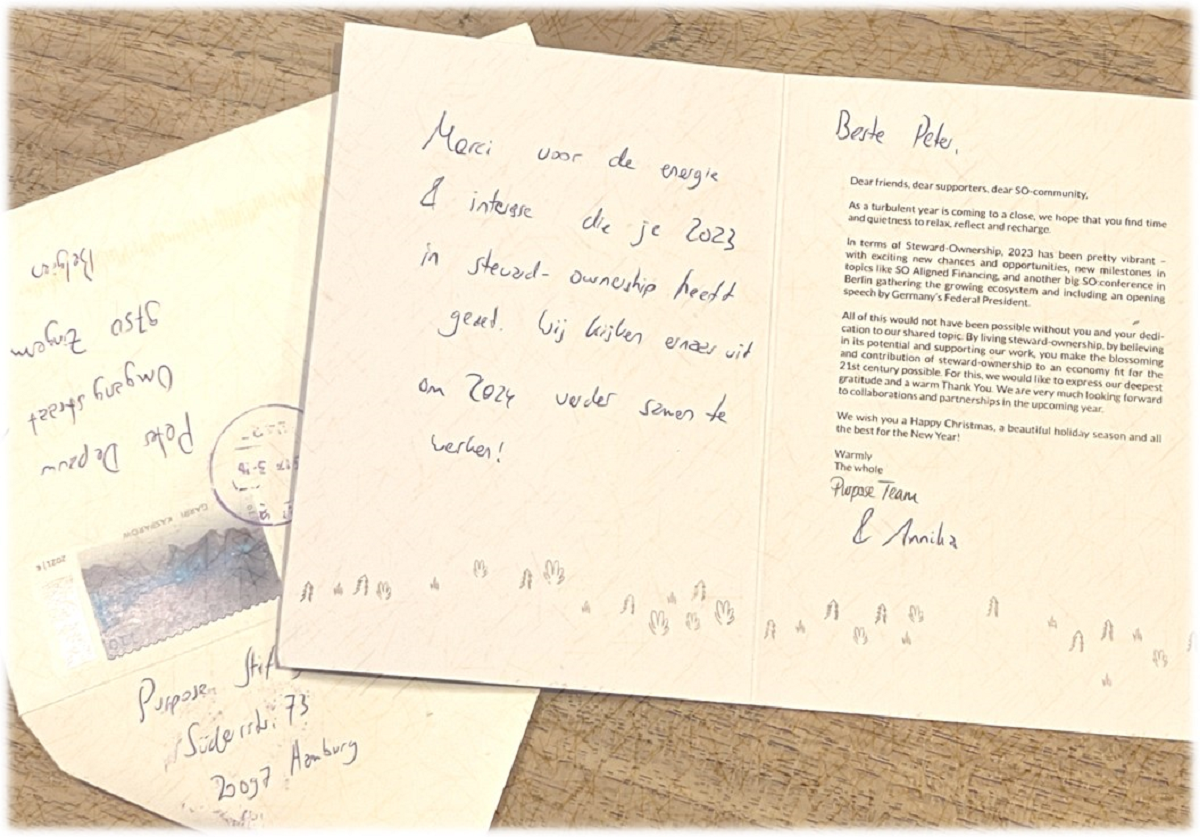 Merci voor de energie
& interesse die je 2023
in steward-ownership heeft
gezet. Wij kijken ernaar uit
om 2024 verder samen te
werken!
Beste Peter,
Dear friends, dear supporters, dear SO-community,
As a turbulent year is coming to a close, we hope that you find time
and quietness to relax, reflect and recharge.
In terms of Steward-Ownership, 2023 has been pretty vibrant –
with exciting new chances and opportunities, new milestones in
topics like SO Aligned Financing, and another big SO:conference in
Berlin gathering the growing ecosystem and including an opening
speech by Germany's Federal President.
All of this would not have been possible without you and your dedi-
cation to our shared topic. By living steward-ownership, by believing
in its potential and supporting our work, you make the blossoming
and contribution of steward-ownership to an economy fit for the
21st century possible. For this, we would like to express our deepest
gratitude and a warm Thank You. We are very much looking forward
to collaborations and partnerships in the upcoming year.
We wish you a Happy Christmas, a beautiful holiday season and all
the best for the New Year!
Warmly
The whole
Purpose Team
& Annika
Peter Depauw
Omgangstraat
9750 Zingem
Belgien
Purpose Stif
Süderstr. 73
20097 Hamburg